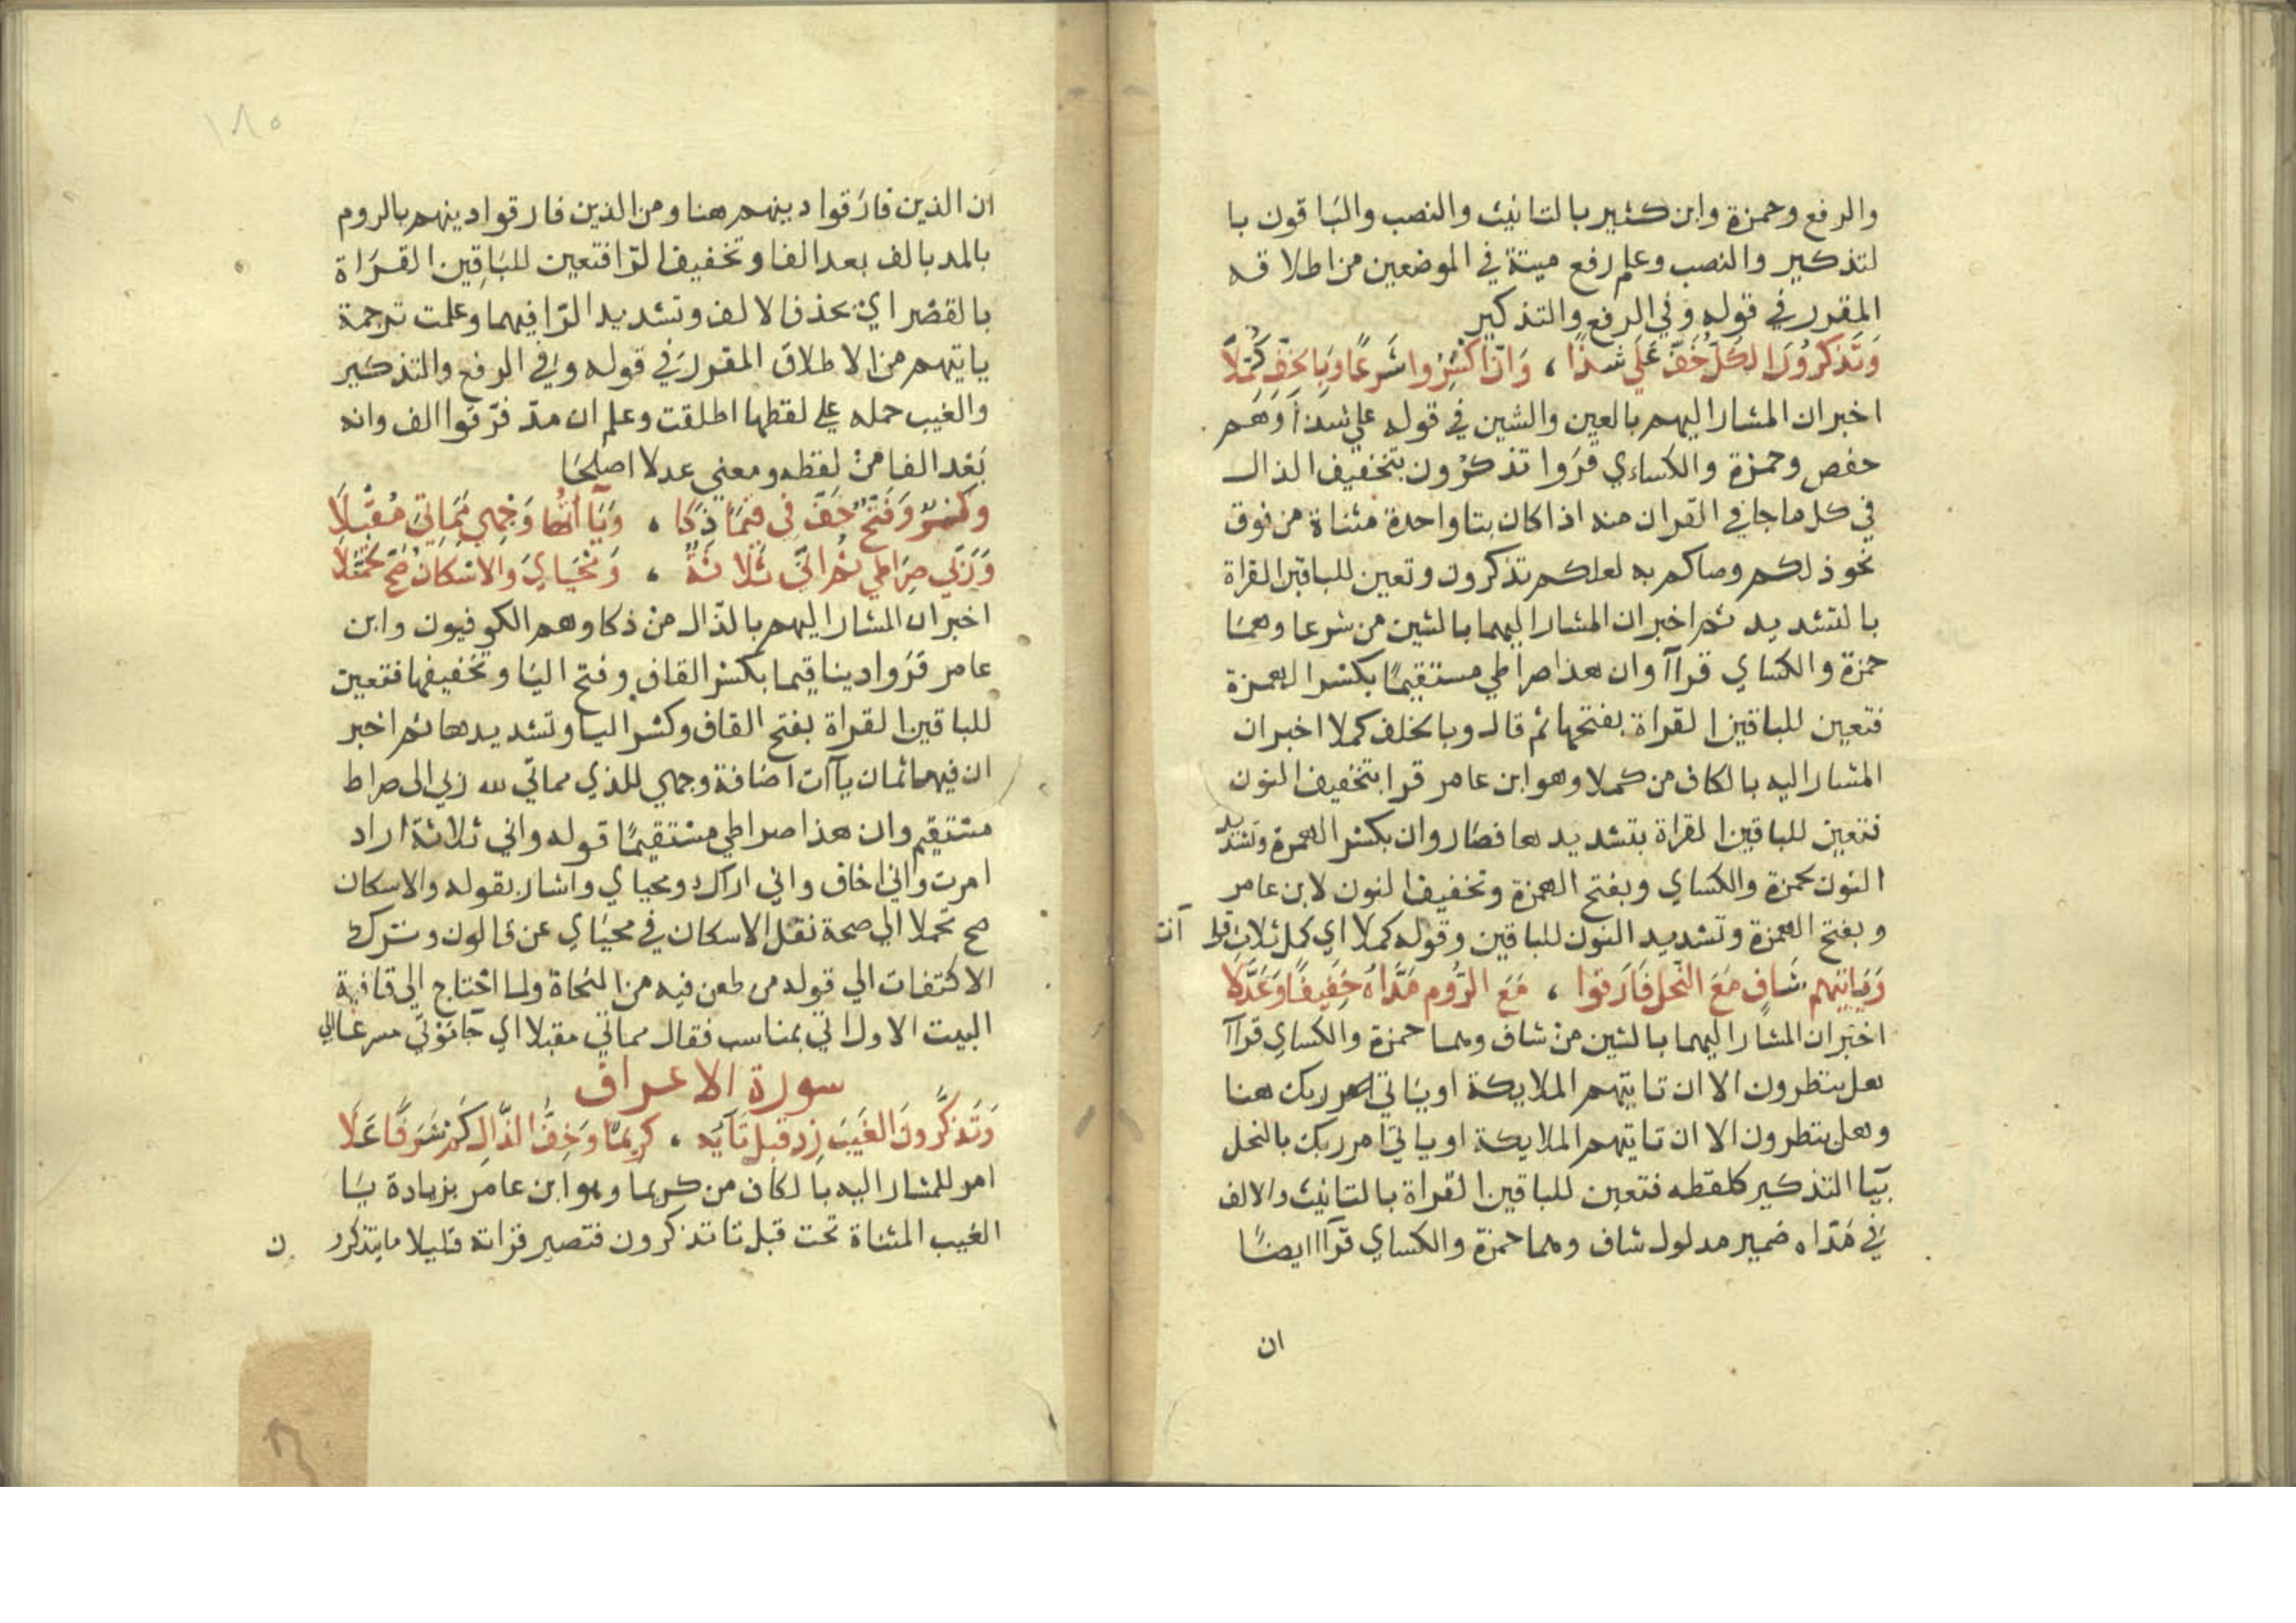 والرفع وحمزة وابن كثير بالتانيث والنصب والبَاقون با
لتذكير والنصب وعلم رفع ميتة في الموضعين من اطلاقه
المقرر في قوله وَفي الرفع والتذكير
وَتَذكرُونَ الكلُّ خَفَّ عَلَي شذًا ، وَانَّ اكسُِرُوا شَرعًا وَبِالخِفِّ كُمِّلَا
اخبر ان المشار اليهم بالعين والشين في قوله علي شذا وَهُم
حفص وحمزة والكساءي قرَوا تذكرون بتخفيف الذال
في كل ما جا في القران منه اذا كان بتا واحدة مثناة من فوق
نحو ذلكم وصاكم به لعلكم تذكرون وتعين للباقين القراة
بالتشديد ثم اخبر ان المشار اليهما بالشين من شرعا وهمَا
حمزة والكساي قراآ وان هذا صراطي مستقيمًا بكسر الهمزة
فتعين للباقين القراة بفتحها ثم قال وبالخلف كملا اخبر ان
المشار اليه بالكاف من كملا وهو ابن عامر قرا بتخفيف النون
فتعين للباقين القراة بتشديدها فصَار وان بكسر الهمزة وتشديد
النون لحمزة والكساي وبفتح الهمزة وتخفيف النون لابن عامر
وبفتح الهمزة وتشديد النون للباقين وقوله كملا اي كمل ثلاث قرا آت
وَيَاتيَهم شَافٍ مَعَ النَّحلِ فَارَقوا ، مَعَ الرُّومِ مَدَّاهُ خَفِيفًا وَعَدَّلَا
اخبر ان المشار اليهما بالشين من شاف وهما حمزة والكساي قراآ
هل ينظرون الا ان تاتيهم الملايكة او ياتي امر ربك هنا
وهل ينظرون الا ان تاتيهم الملايكة او ياتي امر ربك بالنحل
بيَا التذكير كلفظه فتعين للباقين القراة بالتانيث والالف
في مَدّاه ضمير مدلول شاف وهما حمزة والكساي قرآا ايضًا
ان
١٨٥
ان الذين فارَقوا دينهم هنا ومن الذين فارقوا دينهم بالروم
بالمد بالف بعد الفا وتخفيف الرّا فتعين للبَاقِين القرَاة
بالقصْر ايْ بحذف الالف وتشديد الرّا فيهما وعلمت ترجمة
ياتيهم من الاطلاق المقرر في قوله وَفي الرفع والتذكير
والغيب حمله علي لفظها اطلقت وعلم ان مدّ فرّقوا الف وانه
بَعْد الفا منْ لفظه ومعني عدلا اصلحَا
وكسْرٌ وَفَتحٌ خَفَّ فِي قيَمًا ذَكَا ، وَيَاآتُهَا وَجْهِي مَمَاتِيَ مُقْبِلَا
وَرَبِّي صِرَاطِي ثُمَّ انِّي ثَلَاثَةٌ ، وَمَحْيَايَ وَالاسْكَانُ صَحَّ تَحَمُّلَا
اخبر ان المشار اليهم بالذّال منْ ذكا وهم الكوفيون وابن
عامر قرَوا دينا قيما بكسْر القاف وفتح اليَا وتخفيفها فتعين
للباقين القراة بفتح القاف وكسْر اليا وتشديدها ثم اخبر
ان فيها ثمان يآات اضافة وجهي للذي مماتي لله ربي الى صراط
مستقيم وان هذا صراطي مستقيمًا قوله واني ثلاثة اراد
امرت واني اخاف واني اراك ومحياي واشار بقوله والاسكان
صح تحملا الي صحة نقل الاسكان في محيَاي عن قالون وترك
الاكتفات الي قوله من طعن فيه من النحاة ولما احْتاج الي قافية
البيت الاول اتي بمناسب فقال مماتي مقبلا اي جا موتي مسرعا الي
سورة الاعراف
وَتَذكَّرُونَ الغَيبَ زِد قبلَ تَآيِهِ ، كرِيمًا وَخِفُّ الذَّالِ كَم شَرَفًا عَلَا
امر للمشار اليه بالكاف من كريما وهو ابن عامر بزيادة يَا
الغيب المثناة تحت قبل تا تذكرون فتصير قراته قليلا ما يتذكرون